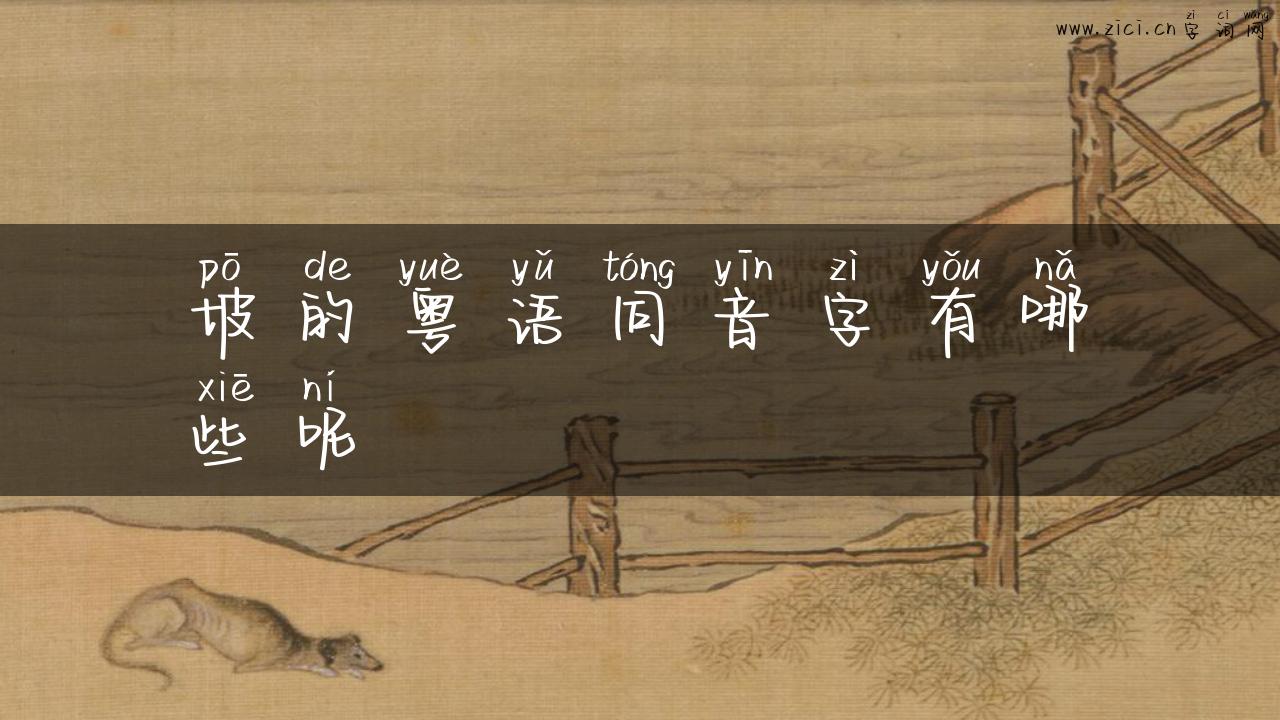 zì cí wǎng
www.zici.cn 字词网
pō de yuè yǔ tóng yīn zì yǒu nǎ
坡的粤语同音字有哪
xiē ní
些呢